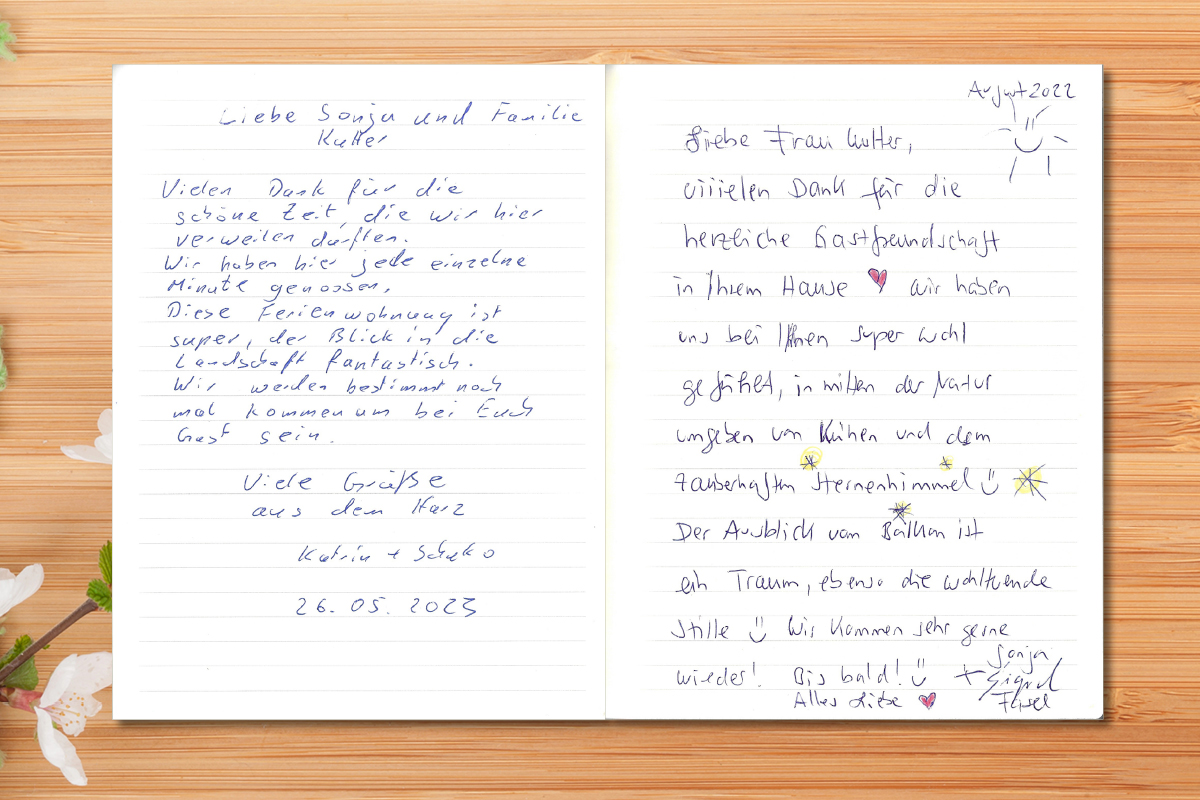 Liebe Sonja und Familie
Kutter
Vielen Dank für die
schöne Zeit, die wir hier
verweilen durften.
Wir haben hier jede einzelne
Minute genossen.
Diese Ferienwohnung ist
super, der Blick in die
Landschaft fantastisch.
Wir werden bestimmt noch
mal kommen um bei Euch
Gast sein.
Viele Grüße
aus dem Harz
Katrin +
26.05.2023
August 2022
Liebe Frau Kutter,
viiielen Dank für die
herzliche Gastfreundschaft
in Ihrem Hause wir haben
uns bei Ihnen super wohl
gefühlt, in mitten der Natur
umgeben von Kühen und dem
zauberhaften Sternenhimmel
Der Ausblick vom Balkon ist
ein Traum, ebenso die wohltuende
Stille Wir kommen sehr gerne
wieder! Bis bald! + Sonja
Alles Liebe